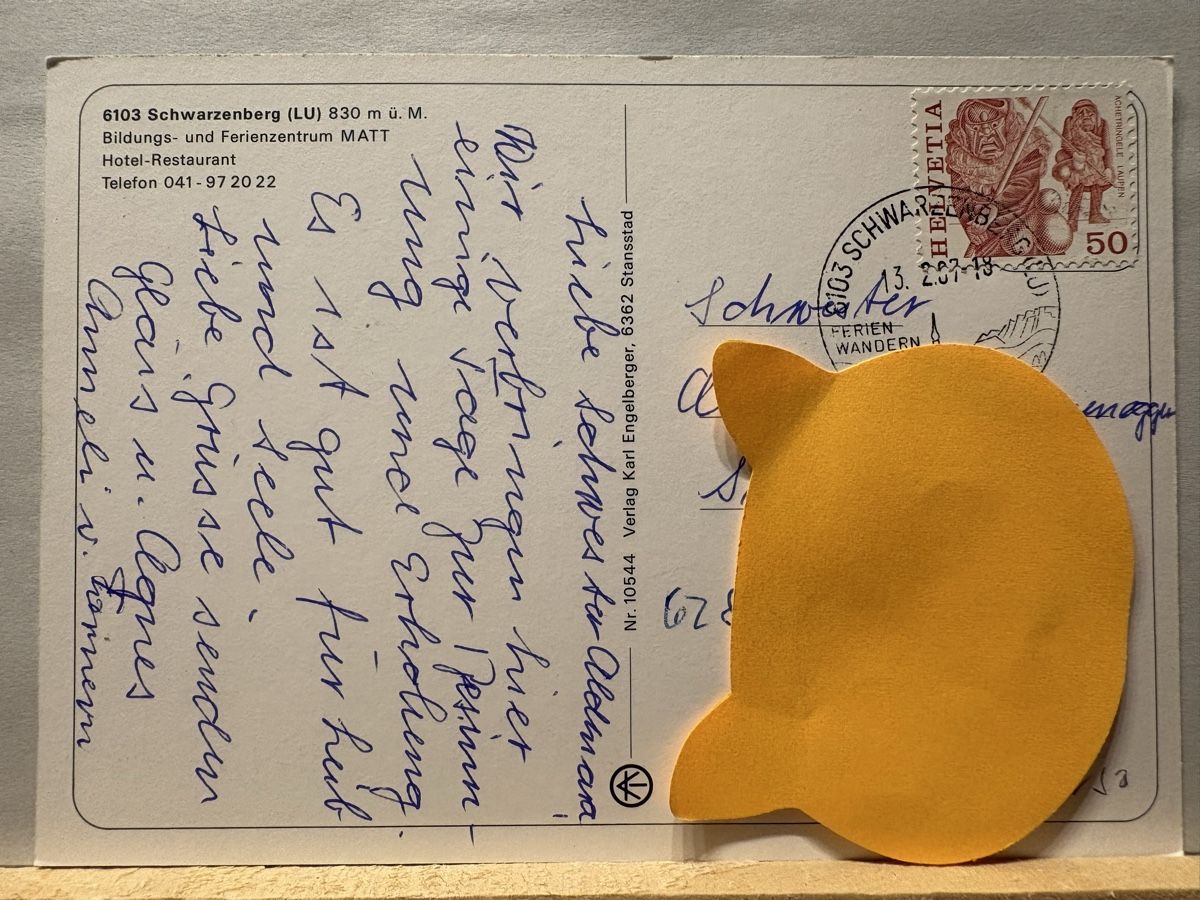 6103 Schwarzenberg (LU) 830 m ü. M.
Bildungs- und Ferienzentrum MATT
Hotel-Restaurant
Telefon 041-97 20 22
Liebe Schwester Aldmara!
Wir verbringen hier
einige Tage zur Besinn-
ung und Erholung.
Es ist gut für Leib
und Seele.
Liebe Grüsse senden
Gläis u. Agnes
Anneli v.
Nr. 10544 Verlag Karl Engelberger, 6362 Stansstad
HELVETIA
ACHETRINGELE LAUPEN
50
6103 SCHWARZENBERG (LU)
13. 2.87-18
FERIEN
WANDERN
Schwester
62